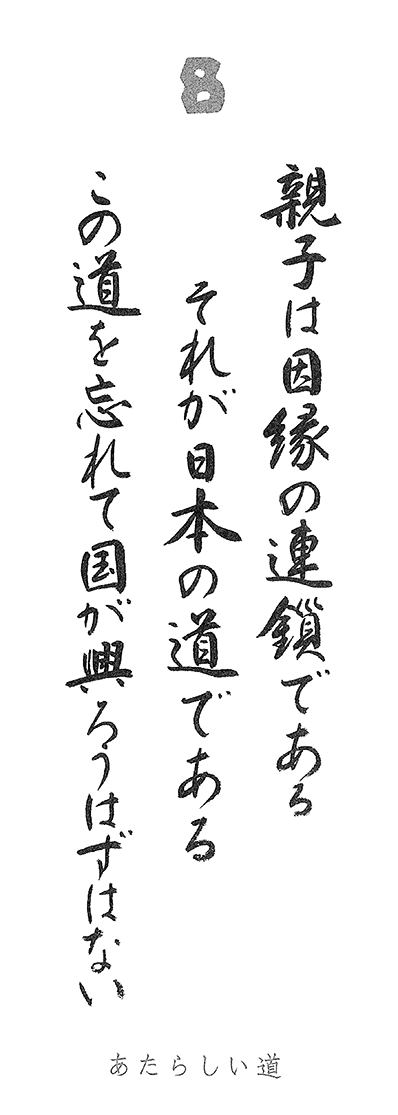 8
親子は因縁の連鎖である
それが日本の道である
この道を忘れて国が興ろうはずはない
あたらしい道